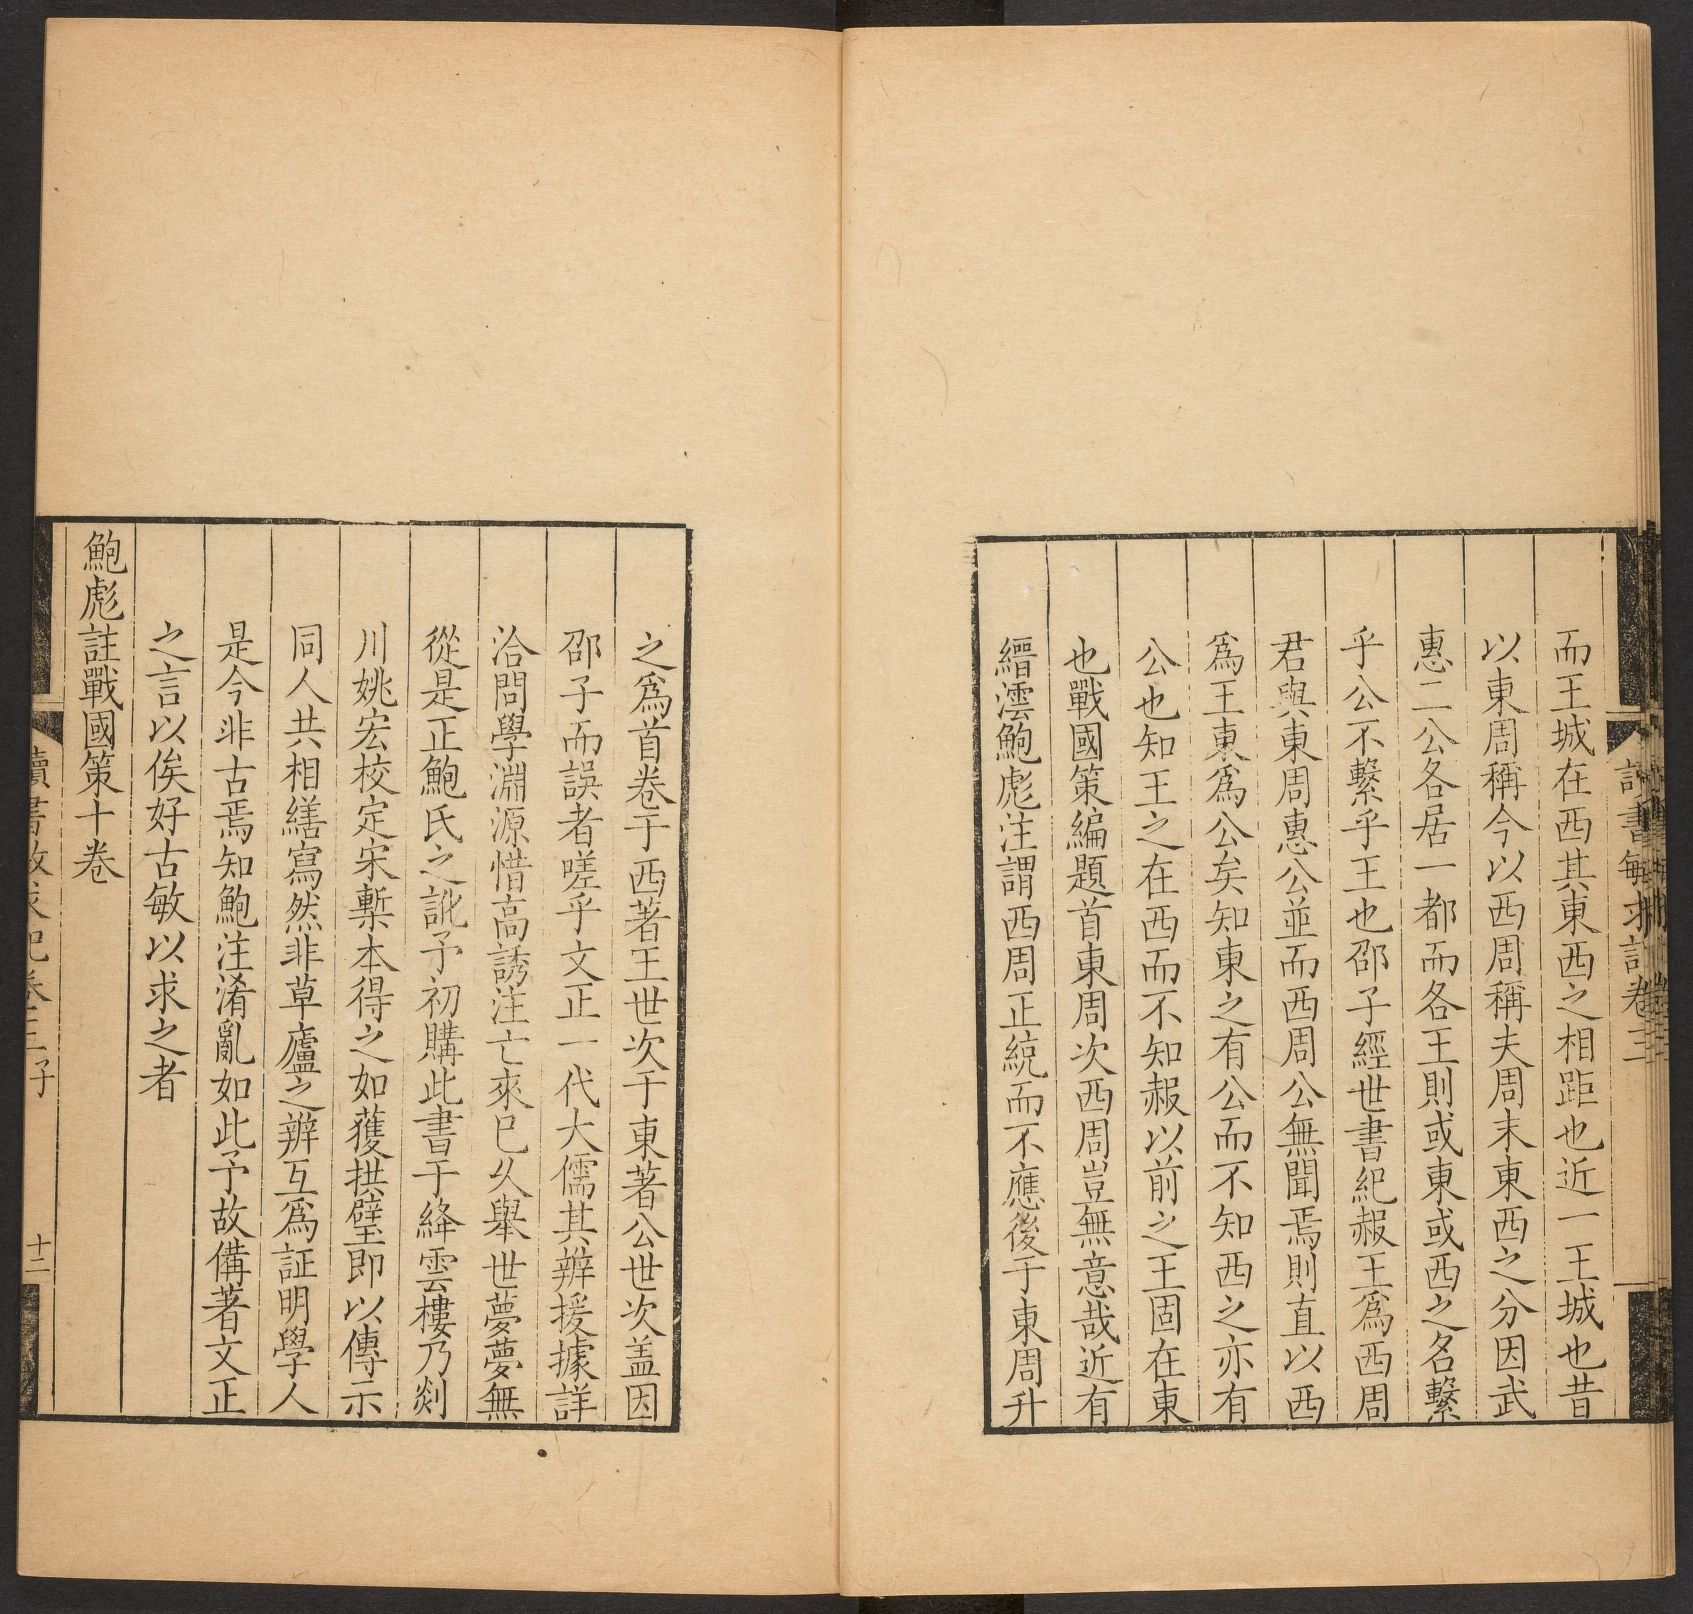 讀書敏求記卷三
而王城在西其東西之相距也近一王城也昔
以東周稱今以西周稱夫周末東西之分因武
惠二公各居一都而各王則或東或西之名繫
乎公不繫乎王也邵子經世書紀赧王爲西周
君與東周惠公並而西周公無聞焉則直以西
爲王東爲公矣知東之有公而不知西之亦有
公也知王之在西而不知赧以前之王固在東
也戰國策編題首東周次西周豈無意哉近有
縉澐鮑彪注謂西周正統而不應後于東周升
之爲首卷于西著王世次于東著公世次盖因
邵子而誤者嗟乎文正一代大儒其辨援據詳
洽問學淵源惜高誘注亡來已久舉世夢夢無
從是正鮑氏之訛予初購此書于絳雲樓乃剡
川姚宏校定宋槧本得之如獲拱璧即以傳示
同人共相繕寫然非草廬之辨互爲証明學人
是今非古焉知鮑注淆亂如此予故備著文正
之言以俟好古敏以求之者
鮑彪註戰國策十卷
讀書敏求記卷三子
十二